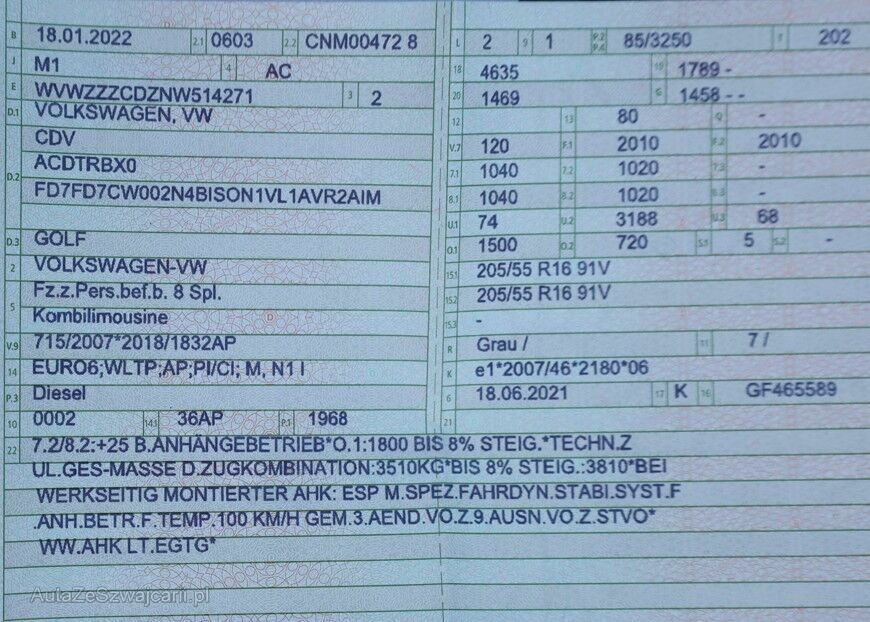 B 18.01.2022 2.1 0603 2.2 CNM00472 8
J M1 4 AC
E WVWZZZCDZNW514271 3 2
D.1 VOLKSWAGEN, VW
CDV
D.2 ACDTRBX0
FD7FD7CW002N4BISON1VL1AVR2AIM
D.3 GOLF
2 VOLKSWAGEN-VW
5 Fz.z.Pers.bef.b. 8 Spl.
Kombilimousine
V.9 715/2007*2018/1832AP
14 EURO6;WLTP;AP;PI/CI; M, N1 I
P.3 Diesel
10 0002 14.1 36AP P.1 1968
L 2 9 1 P.2 P.4 85/3250 T 202
18 4635 19 1789 -
20 1469 G 1458 - -
12 13 80 Q -
V.7 120 F.1 2010 F.2 2010
7.1 1040 7.2 1020 7.3 -
8.1 1040 8.2 1020 8.3 -
U.1 74 U.2 3188 U.3 68
O.1 1500 O.2 720 S.1 5 S.2 -
15.1 205/55 R16 91V
15.2 205/55 R16 91V
15.3 -
R Grau / 11 7 /
K e1*2007/46*2180*06
6 18.06.2021 17 K 16 GF465589
21
22 7.2/8.2:+25 B.ANHÄNGEBETRIEB*O.1:1800 BIS 8% STEIG.*TECHN.Z
UL.GES-MASSE D.ZUGKOMBINATION:3510KG*BIS 8% STEIG.:3810*BEI
WERKSEITIG MONTIERTER AHK: ESP M.SPEZ.FAHRDYN.STABI.SYST.F
.ANH.BETR.F.TEMP.100 KM/H GEM.3.AEND.VO.Z.9.AUSN.VO.Z.STVO*
WW.AHK LT.EGTG*
AutaZeSzwajcarii.pl